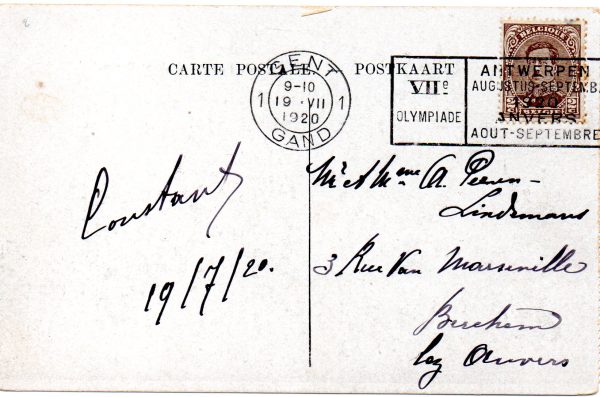 CARTE POSTALE. POSTKAART
GENT
9-10
1 19 ·VII 1
1920
GAND
VIIe
OLYMPIADE
ANTWERPEN
AUGUSTUS-SEPTEMB.
1920
ANVERS
AOUT-SEPTEMBRE
BELGIQUE
Constant
19/7/20.
Mr & Mme A. Peeren-
Lindemans
3 Rue Van Marseville
Berchem
lez Anvers